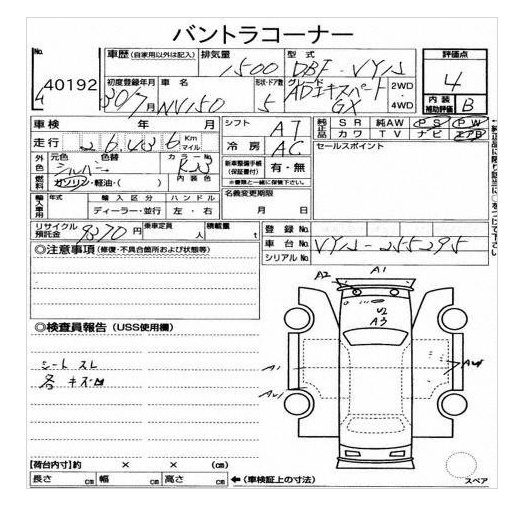 バントラコーナー
No. 40192
車歴 (自家用以外は記入) 排気量 1500 型式 DBF-VY12
初度登録年月 20/7月 車名 NV150 形状・ドア数 5 グレード ADエキスパート GX 2WD 4WD
評価点 4
内装補助評価 B
車検 年 月 シフト AT
純正品 SR 純AW PS PW
カワ TV ナビ エアB
走行 26,403.6 Km マイル 冷房 AC
セールスポイント
外色 元色 シルバー 色替 カラーNo. K23
新車整備手帳 (保証書付) 有・無
※書類と一緒に保管下さい。
燃料 ガソリン・軽油・( ) 内装色
輸入車用 年式 輸入区分 ハンドル
ディーラー・並行 左・右
名義変更期限
月 日
リサイクル預託金 9870 円 乗車定員 人 積載量 t
登録No.
車台No. VY12-255295
シリアルNo.
◎注意事項 (修復・不具合箇所および状態等)
A2 A1
U2
A3
◎検査員報告 (USS使用欄)
シート スレ
各 キズ凹
A1
【荷台内寸】約 × × (cm)
長さ cm 幅 cm 高さ cm ←(車検証上の寸法)
スペア